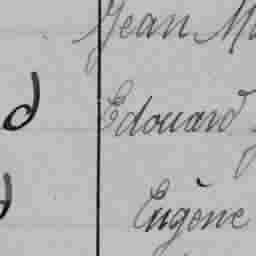 Jean
d Edouard
d Eugène